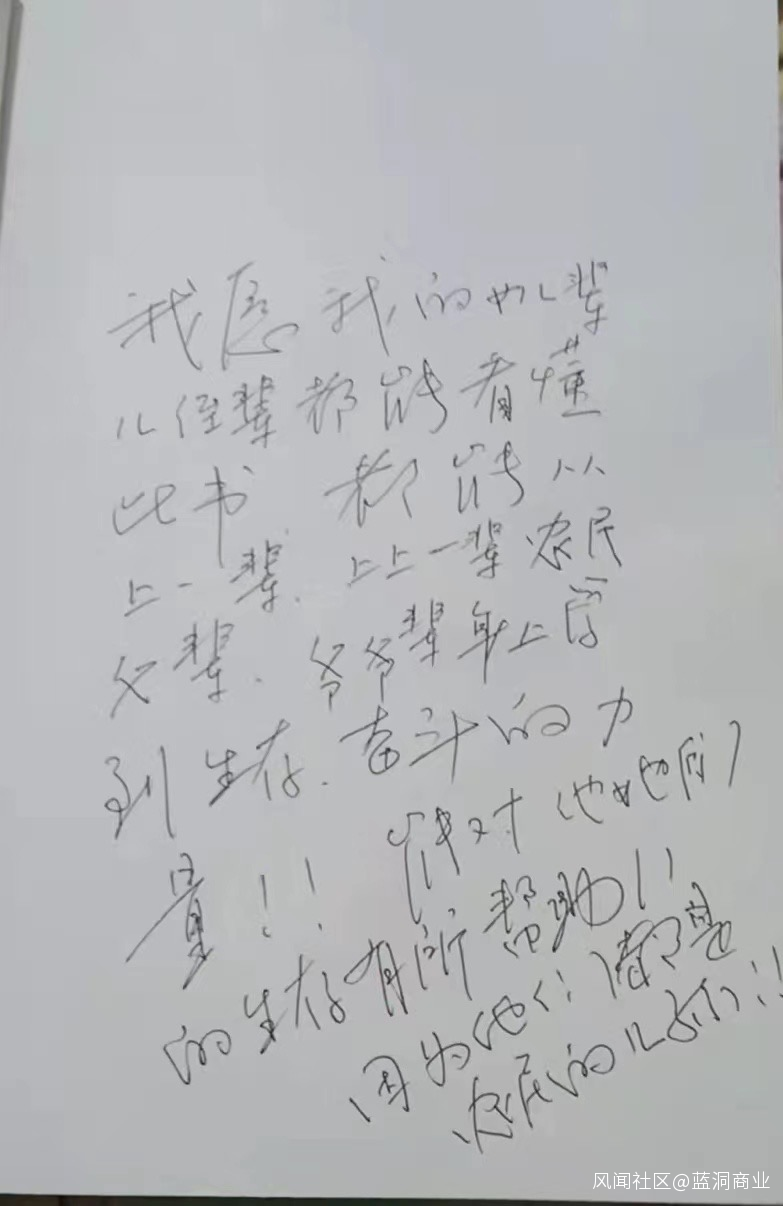 我愿我的儿辈
儿侄辈都能看懂
此书 都能从
上一辈、上上一辈农民
父辈、爷爷辈身上学
到生存、奋斗的力
量!! 能对他她们
的生存有所帮助!!
因为他们都是
农民的儿子们!!
风闻社区@蓝洞商业